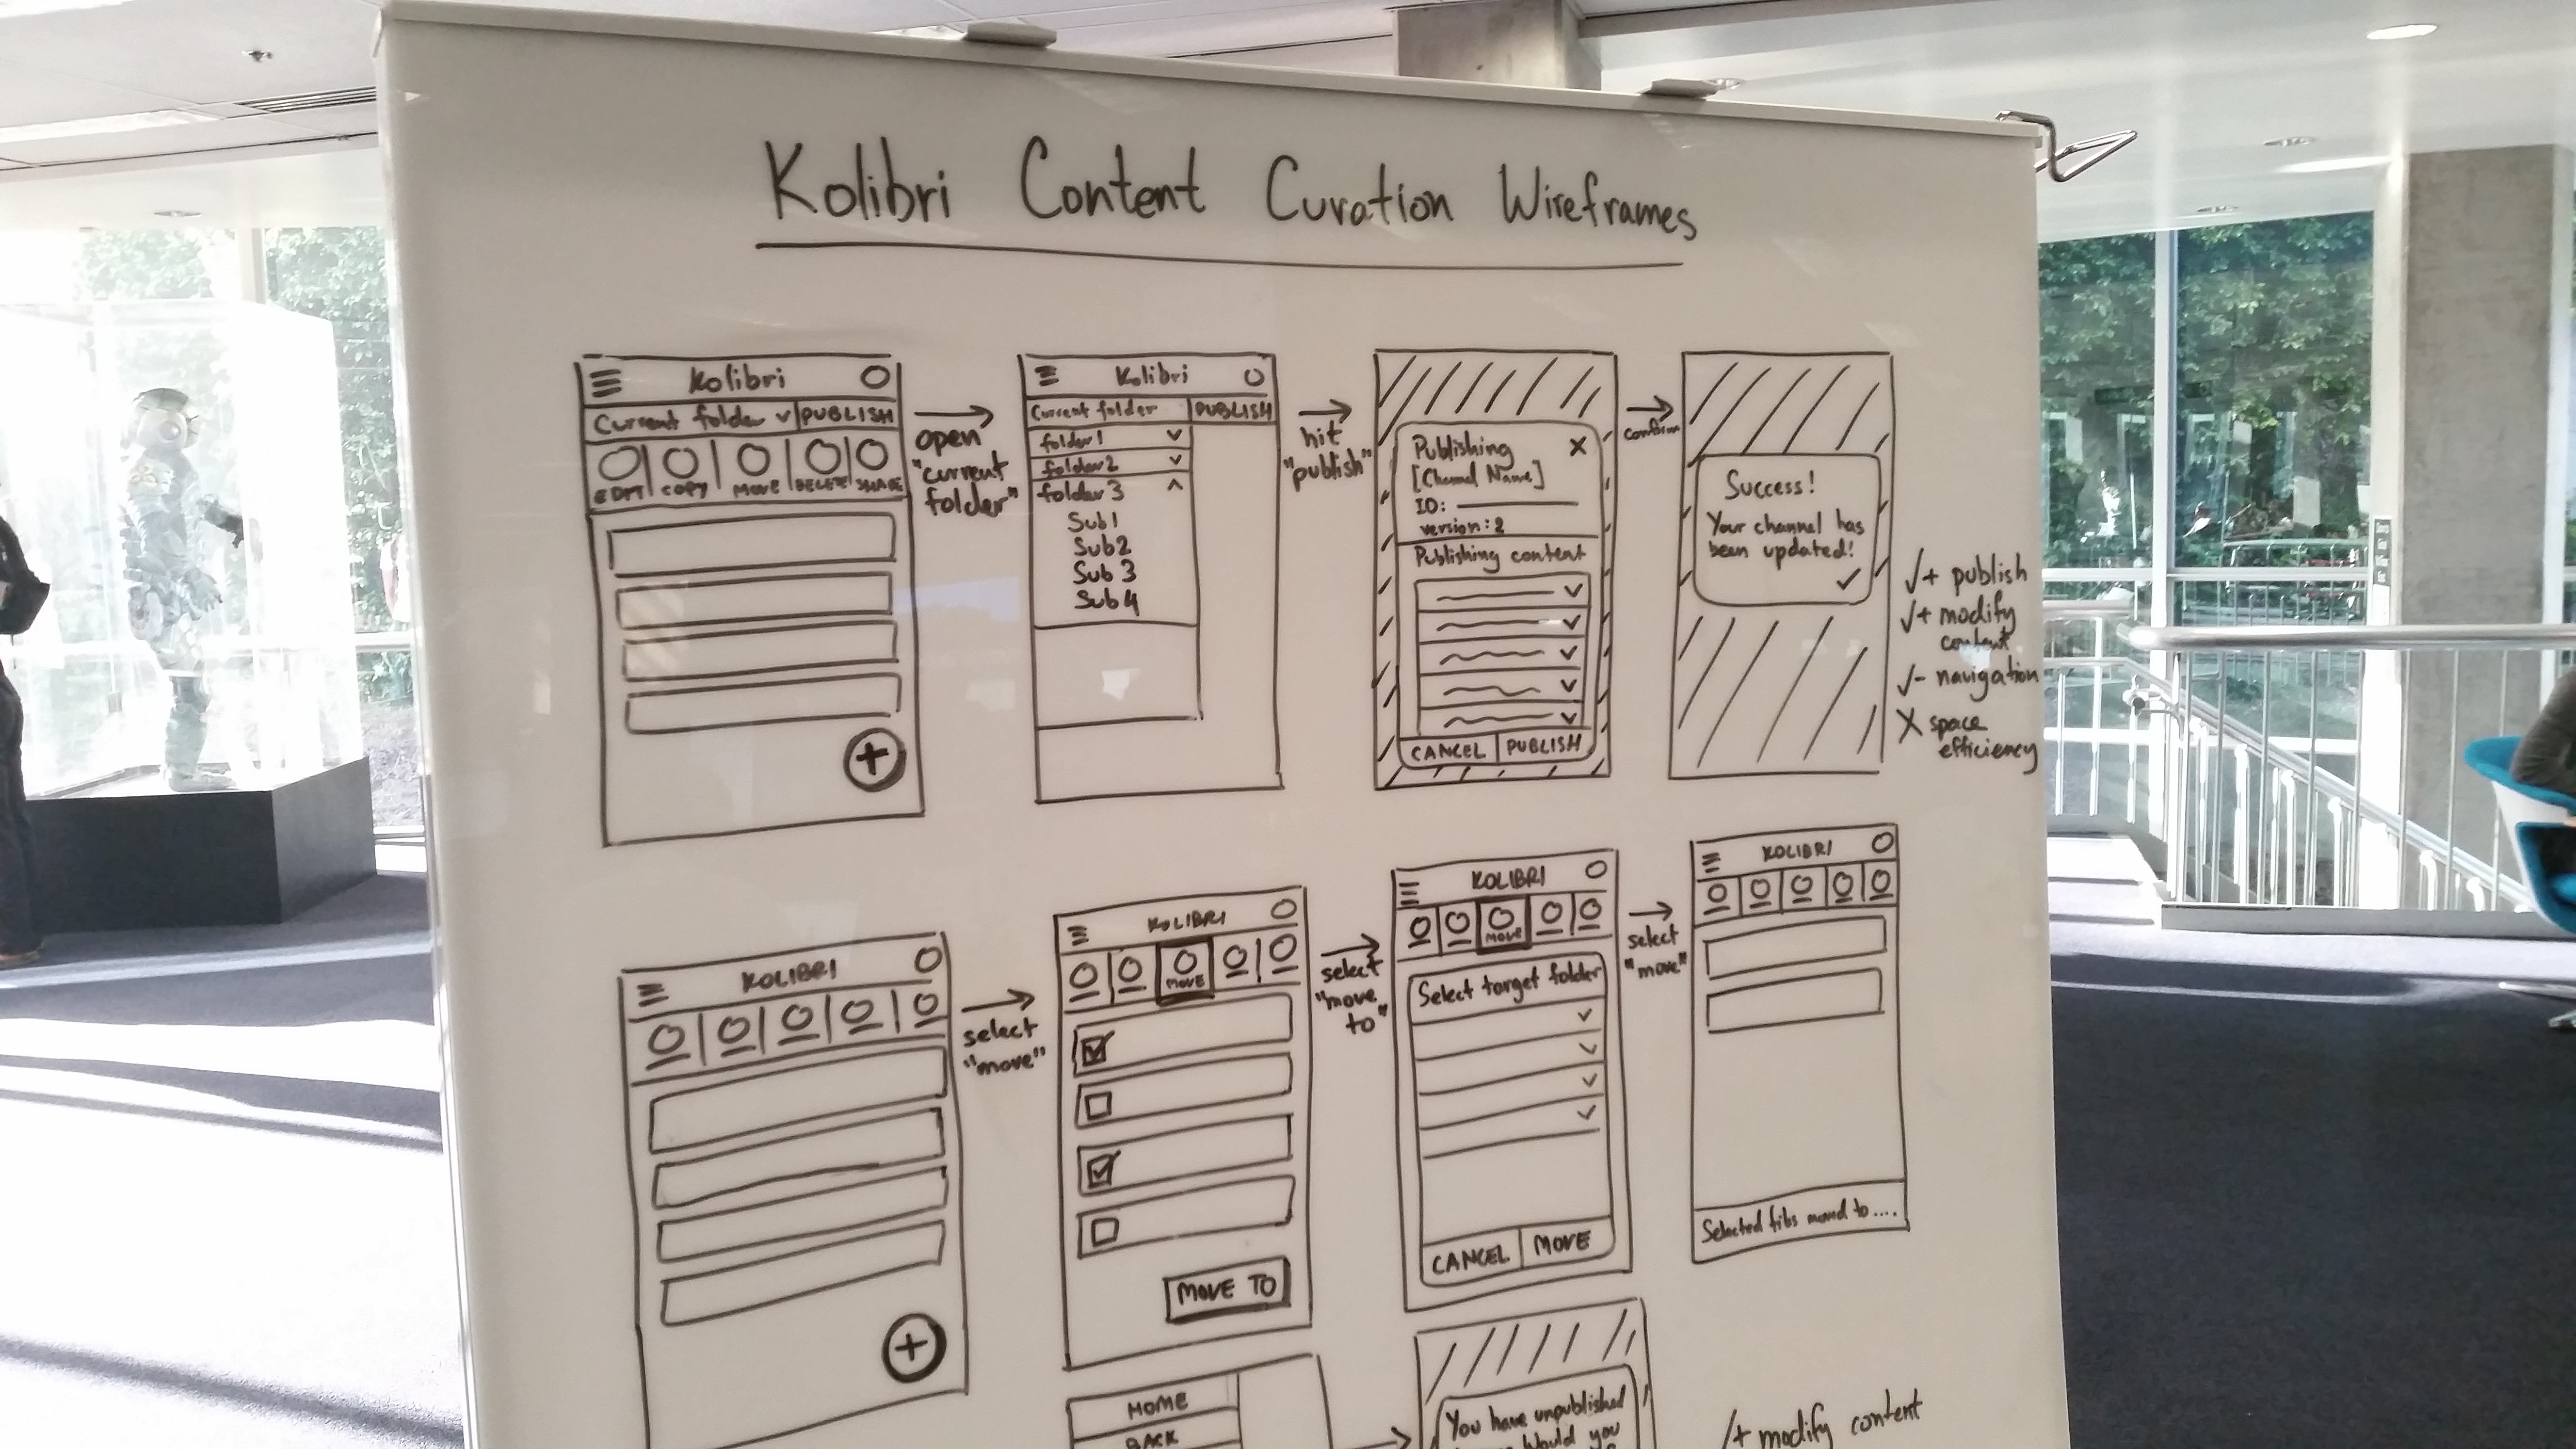 Kolibri Content Curation Wireframes
Kolibri
Current folder PUBLISH
EDIT COPY MOVE DELETE SHARE
open
"current
folder"
Kolibri
Current folder PUBLISH
folder1
folder2
folder3
Sub1
Sub2
Sub3
Sub4
hit
"publish"
Publishing X
[Channel Name]
ID:
version: 2
Publishing content
CANCEL PUBLISH
confirm
Success!
Your channel has
been updated!
√+ publish
√+ modify
content
√- navigation
X space
efficiency
KOLIBRI
select
"move"
KOLIBRI
MOVE
MOVE TO
select
"move
to"
KOLIBRI
MOVE
Select target folder
CANCEL MOVE
select
"move"
KOLIBRI
Selected files moved to ....
HOME
BACK
You have unpublished
Would you
√+ modify content